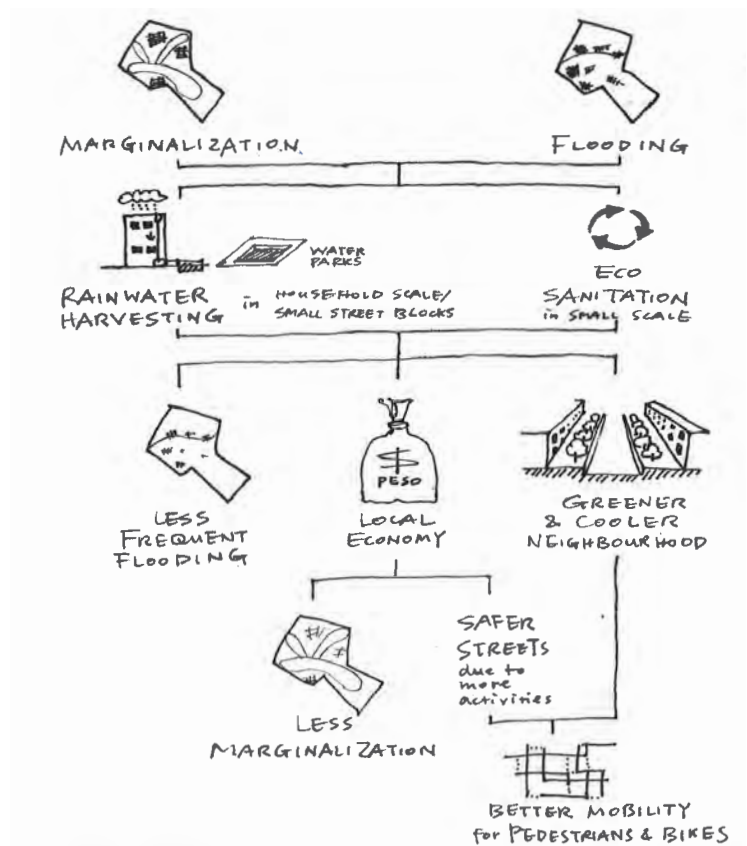 MARGINALIZATION
FLOODING
WATER
PARKS
RAINWATER
HARVESTING
in HOUSEHOLD SCALE/
SMALL STREET BLOCKS
ECO
SANITATION
in SMALL SCALE
LESS
FREQUENT
FLOODING
$
PESO
LOCAL
ECONOMY
GREENER
& COOLER
NEIGHBOURHOOD
LESS
MARGINALIZATION
SAFER
STREETS
due to
more
activities
BETTER MOBILITY
for PEDESTRIANS & BIKES